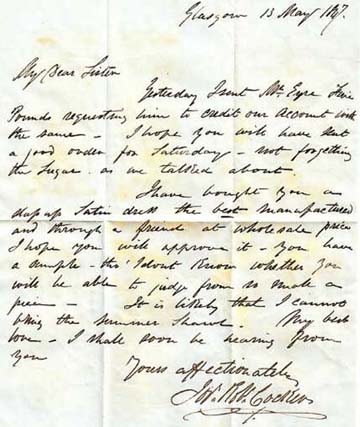 Glasgow 13 May 1847.
My Dear Sister
Yesterday I sent Mr. Eyre Five
Pounds requesting him to credit our Account with
the same - I hope you will have sent
a good order for Saturday - not forgetting
the Sugar as we talked about.
I have bought you a
Satin dress the best manufactured
and through a friend at wholesale price
I hope you will approve it - You have
a sample - tho' I dont know whether you
will be able to judge from so small a
piece - It is likely that I cannot
bring the summer Shawl. My best
love - I shall soon be hearing from
you
Yours affectionately